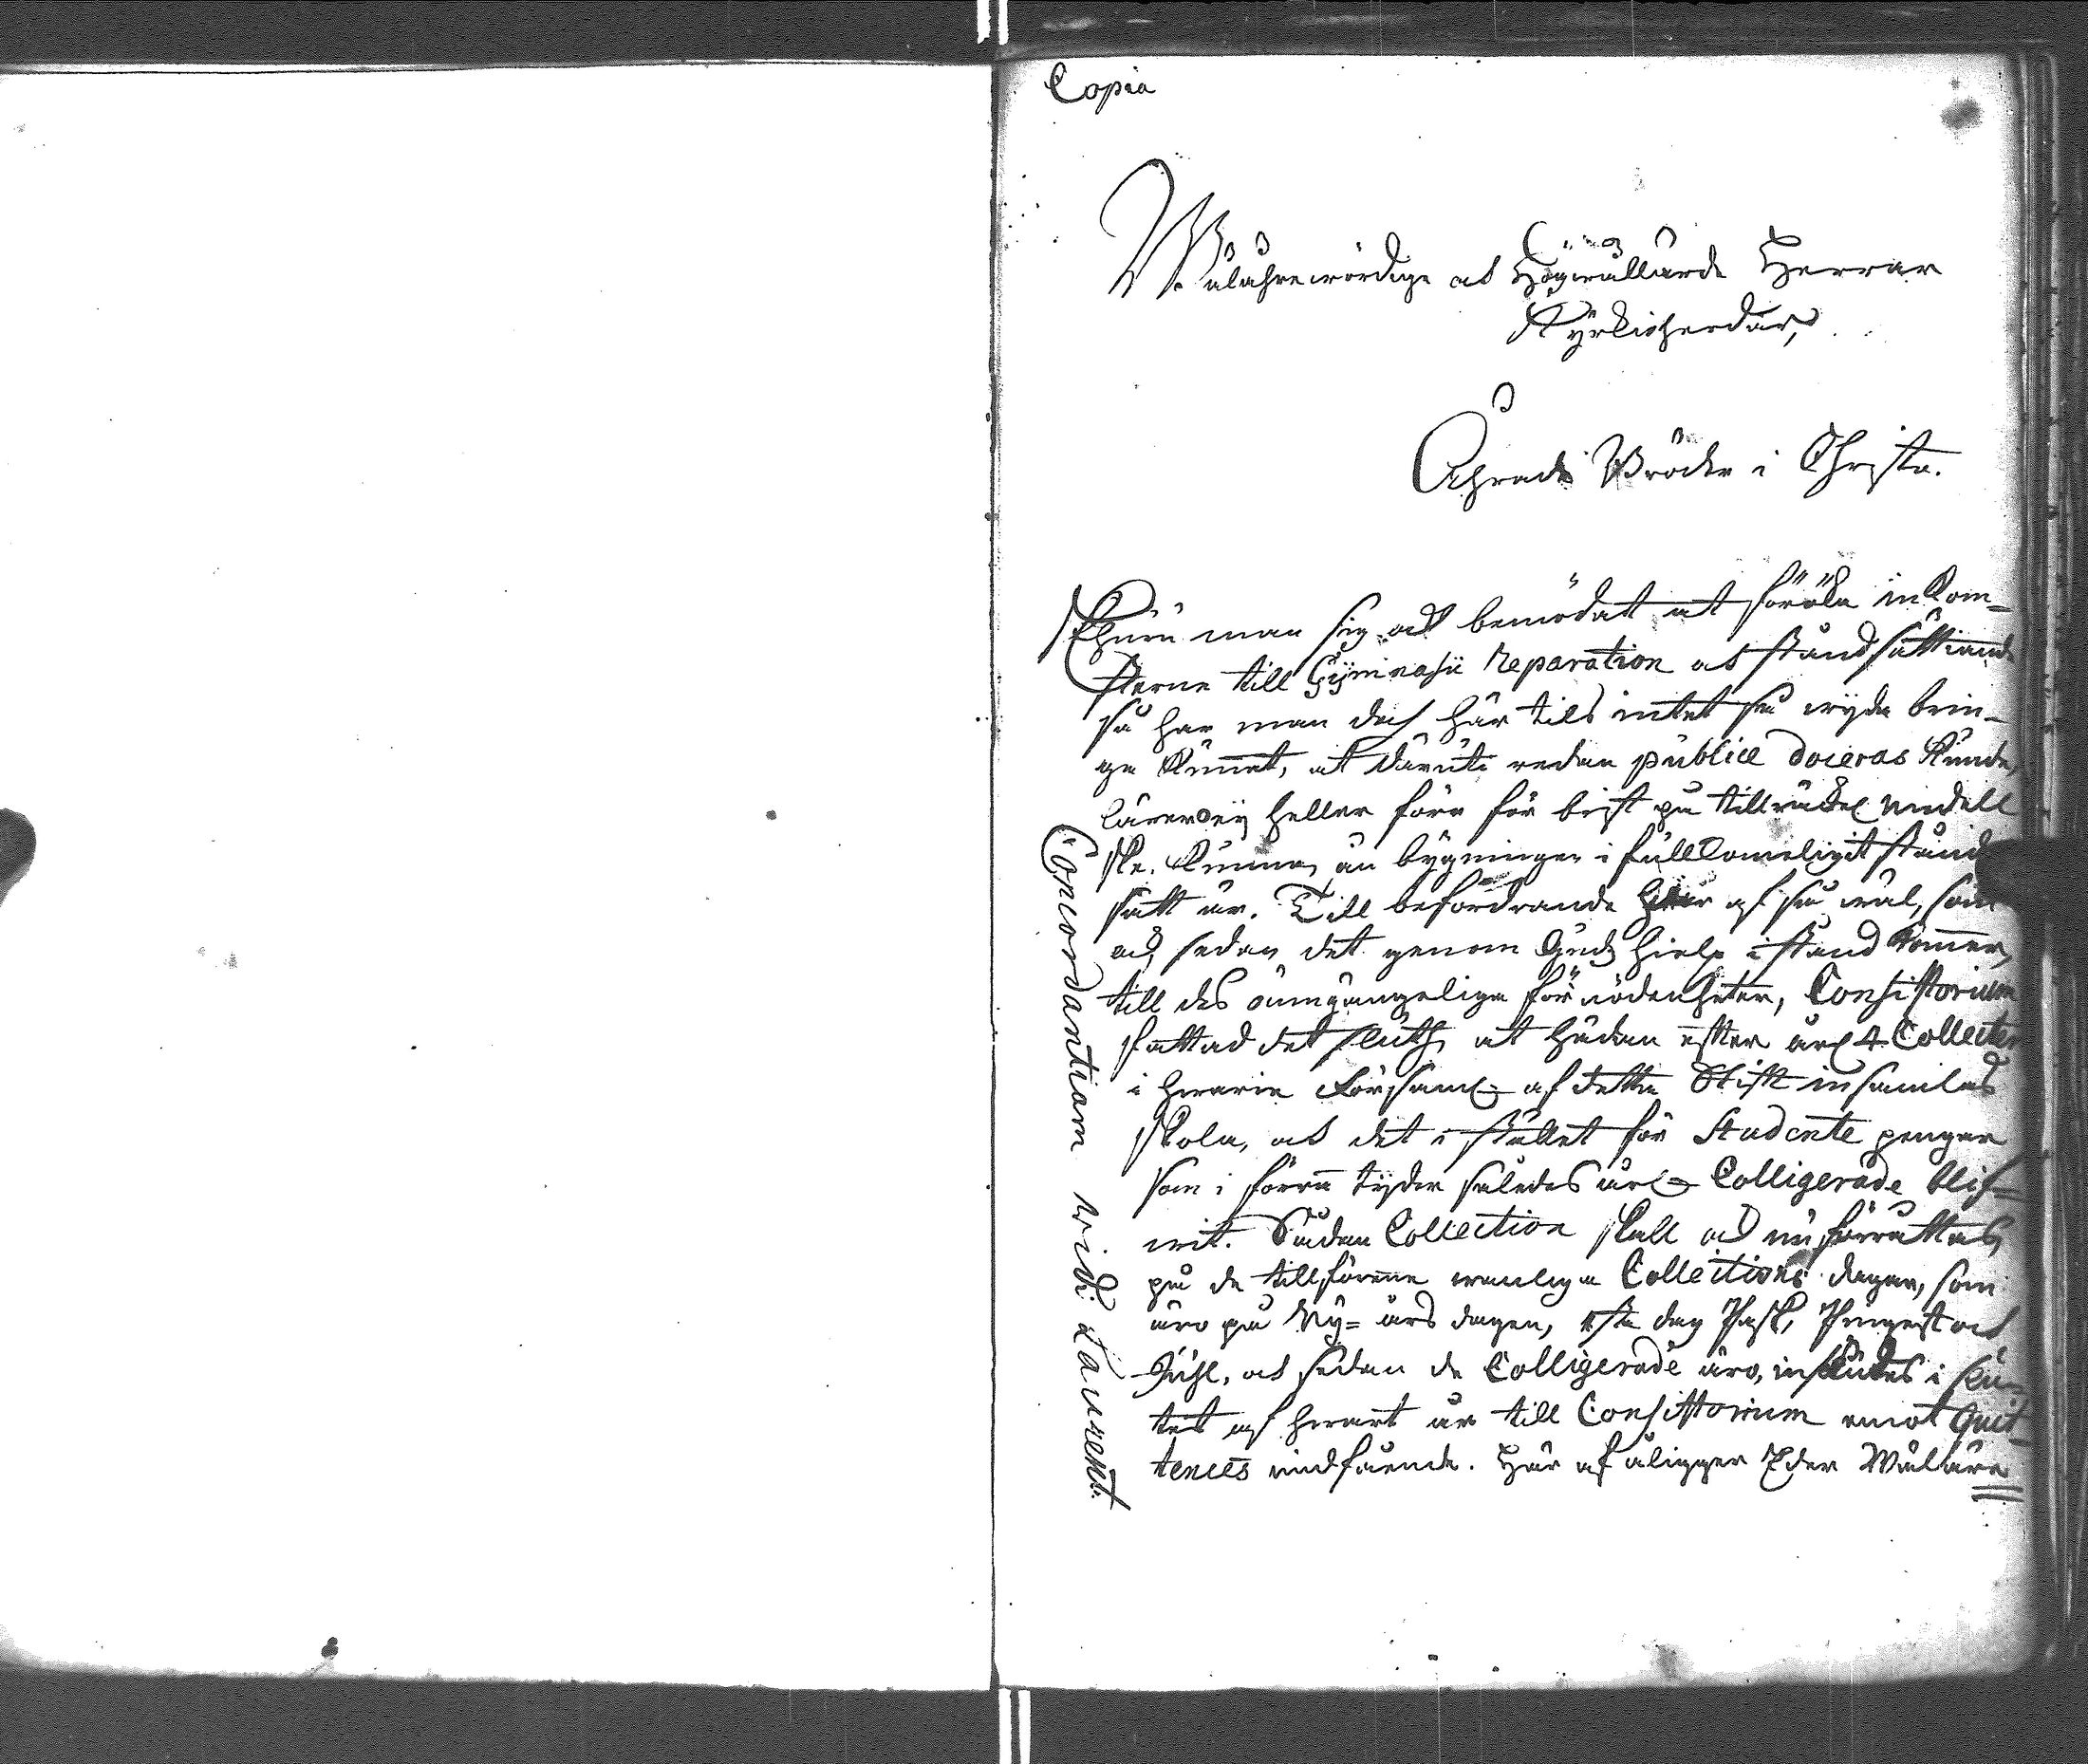 Copia
Wälährewördige och Högwällärde Herrar
Kyrkioherdar,
Ährade Bröder i Christo.
Ehuru man sig och bemödat at föröka inkom-
sterne till Gymnasii reparation och ståndsättiande
så har man doch här tils intet så wyda brin-
ga kunnat, at däruti redan publice doceras kunde,
lärer ey heller förr för brist på tillräckel. medell
ske kunna, än bygningen i fullkomeligit stånd
satt är. Till befordrande här af så wäl, som
och, sedan det genom Gudz hielp i stånd kommer,
till des oumgängelige förnödenheter, Consistorium
fattad det sluth, at hädan efter årl. 4 Collecter
i hwarie Församl. af detta Stift insamlas
skola, och det i stället för Studente pengar
som i förra tyder således årl. Colligerade blif-
wit. Sådan Collection skall och nu förrättas,
på de tillförenne wanliga Collections dagar, som
äro på Ny-års dagen, 1sta dag Påsk, Pingest och
Juhl, och sedan de Colligerade äro, insändes i
tet af hwart år till Consistorium emot Quit-
tences undfående. Här af åligger Eder Wälähre
Concordantiam vidi Laurent.